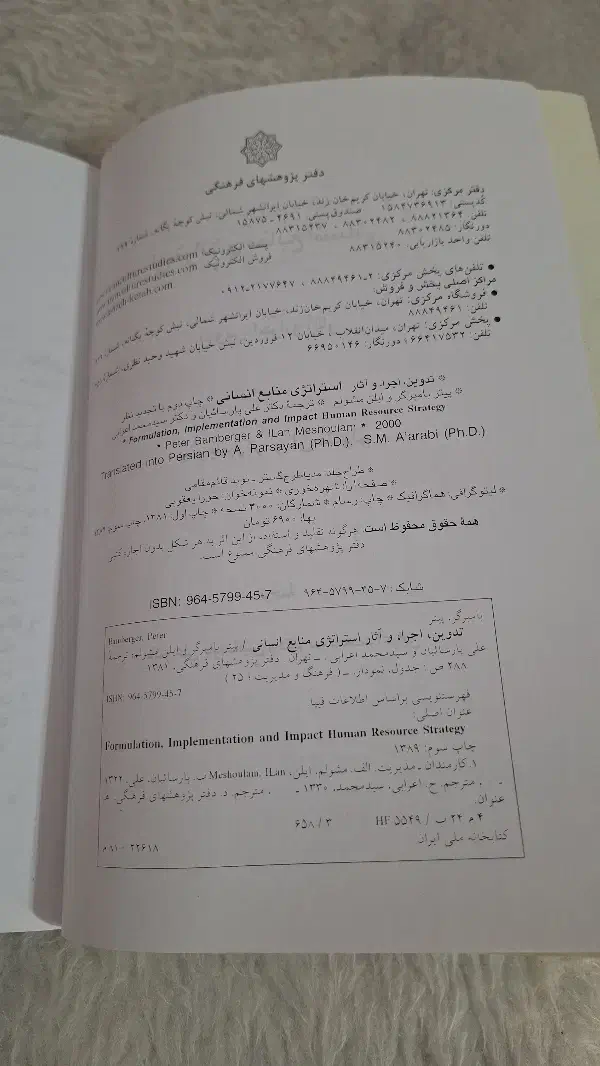 دفتر پژوهشهای فرهنگی
دفتر مرکزی: تهران، خیابان کریم‌خان زند، خیابان ایرانشهر شمالی، نبش کوچهٔ یگانه، شماره
کدپستی: ۱۵۸۴۷۳۶۹۱۳ صندوق‌پستی: ۴۶۹۱-۱۵۸۷۵
تلفن: ۸۸۸۲۱۳۶۴ ، ۸۸۳۰۲۴۸۲ ، ۸۸۳۱۵۲۳۷
دورنگار: ۸۸۳۰۲۴۸۵ پست الکترونیک:
تلفن واحد بازاریابی: ۸۸۳۱۵۲۴۰ فروش الکترونیک:
● تلفن‌های پخش مرکزی: ۲-۸۸۸۴۹۴۶۱ ، ۰۹۱۲-۲۱۷۷۶۴۷
مراکز اصلی پخش و فروش:
● فروشگاه مرکزی: تهران، خیابان کریم‌خان‌زند، خیابان ایرانشهر شمالی، نبش کوچهٔ یگانه، شماره
تلفن: ۸۸۸۴۹۴۶۱
● پخش مرکزی: تهران، میدان‌انقلاب، خیابان ۱۲ فروردین، نبش خیابان شهید وحید نظری، شماره
تلفن: ۶۶۴۱۷۵۳۲ دورنگار: ۶۶۹۵۰۱۴۶
* تدوین، اجرا، و آثار استراتژی منابع انسانی * چاپ دوم با تجدید نظر
* پیتر بامبرگر و ایلن مشولم * ترجمهٔ دکتر علی پارسائیان و دکتر سیدمحمد اعرابی
* Formulation, Implementation and Impact Human Resource Strategy
* Peter Bamberger & ILan Meshoulam: * 2000
Translated into Persian by A. Parsayan (Ph.D.), S.M. A'arabi (Ph.D.)
* طراح‌جلد:
* صفحه‌آرا: * نمونه‌خوان: حورا یعقوبی
* لیتوگرافی: هماگرافیک * چاپ: * شمارگان: ۳۰۰۰ نسخه * چاپ اول: ۱۳۸۱، چاپ سوم:
بها: ۶۹۰۰ تومان
همهٔ حقوق محفوظ است. هرگونه تقلید و استفاده از این اثر به هر شکل بدون اجازه کتبی
دفتر پژوهشهای فرهنگی ممنوع است.
ISBN: 964-5799-45-7 شابک: ۷-۴۵-۵۷۹۹-۹۶۴
Bamberger, Peter بامبرگر، پیتر
تدوین، اجرا، و آثار استراتژی منابع انسانی / پیتر بامبرگر و ایلن مشولم؛ ترجمهٔ
علی پارسائیان و سیدمحمد اعرابی. ــ تهران: دفتر پژوهشهای فرهنگی، ۱۳۸۱
۲۸۸ ص: جدول، نمودار. ــ ( فرهنگ و مدیریت؛ ۲۵ )
ISBN: 964-5799-45-7
فهرستنویسی براساس اطلاعات فیپا
عنوان اصلی:
Formulation, Implementation and Impact Human Resource Strategy
چاپ سوم: ۱۳۸۹
۱. کارمندان ـ مدیریت. الف. مشولم، ایلن، Meshoulam, ILan ب. پارسائیان، علی، ۱۳۲۲
ـ ، مترجم. ج. اعرابی، سیدمحمد، ۱۳۳۰ ـ ، مترجم. د. دفتر پژوهشهای فرهنگی. ه.
عنوان.
۴ م ۲۴ ب / HF ۵۵۴۹ ۶۵۸ / ۳
کتابخانه ملی ایران ۲۲۶۱۸ - ۸۱ م